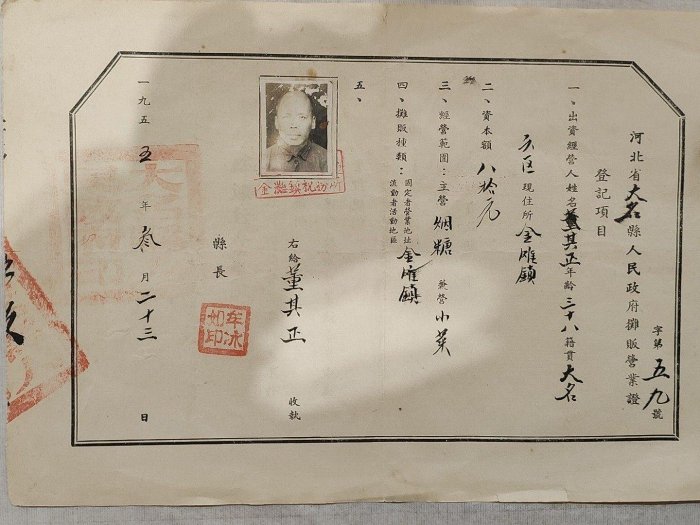 河北省大名縣人民政府攤販營業證
字第五九號
登記項目
一、出資經營人姓名董其正年齡三十八籍貫大名
六区現住所金滩鎮
二、資本額八拾元
三、經營範圍：主營烟糖兼營小菜
四、攤販種類：固定者營業地址
流動者活動地區
金滩鎮
五、
金灘鎮税
右給董其正收執
縣長
年冰如印
一九五五年叁月二十三日